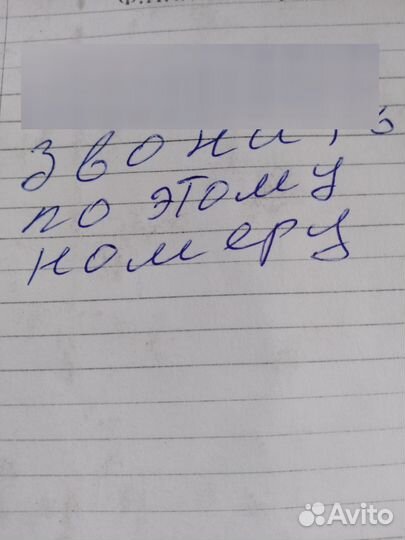 звони,
по этому
номеру
Avito